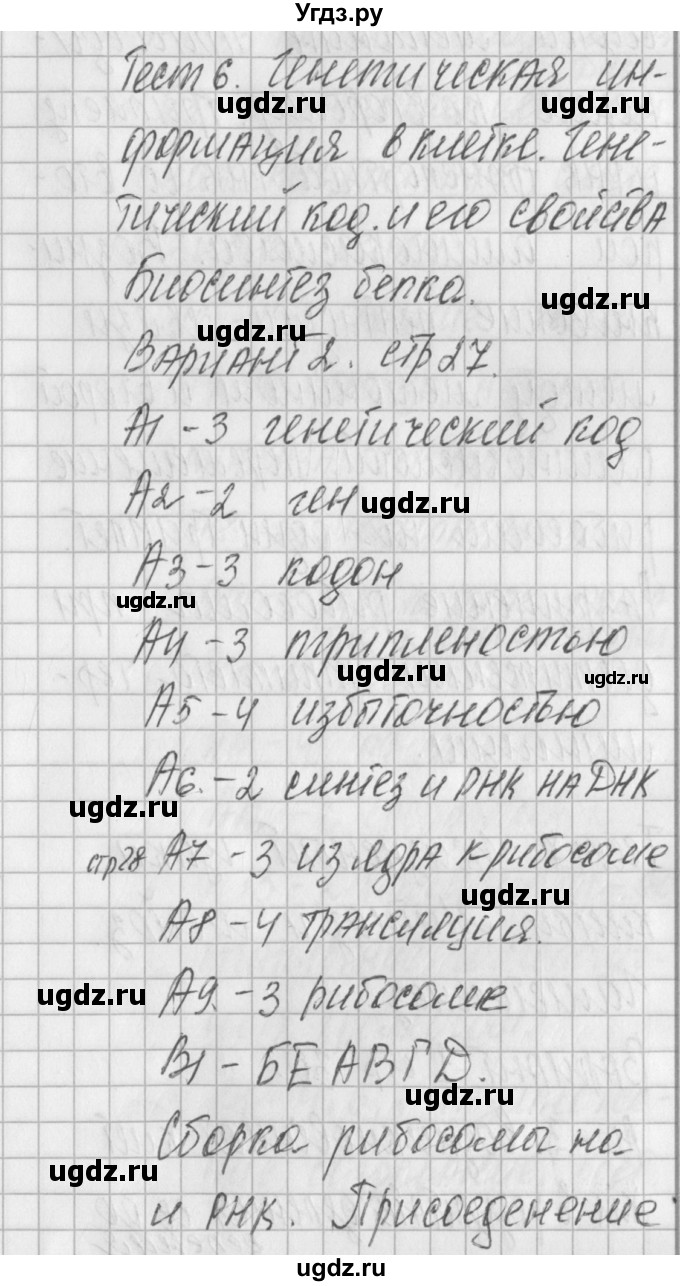 Угдз.ру
Тест 6. Генетическая ин-
ugdz.ru ugdz.ru
формация в клетке. Гене-
тический код. и его свойства
Биосинтез белка.
ugdz.ru
ugdz.ru
Вариант 2. стр 27.
А1 - 3 генетический код
А2 - 2 ген ugdz.ru
А3 - 3 кодон
ugdz.ru
А4 - 3 трипленостью
ugdz.ru ugdz.ru
А5 - 4 избыточностью
А6. - 2 синтез и РНК на ДНК
ugdz.ru
стр28 А7 - 3 из ядра к рибосоме
ugdz.ru
А8 - 4 трансляция.
ugdz.ru А9. - 3 рибосоме
В1 - БЕАВГД.
ugdz.ru
Сборка рибосомы на
ugdz.ru
и РНК. Присоеденение
ugdz.ru
ugdz.ru